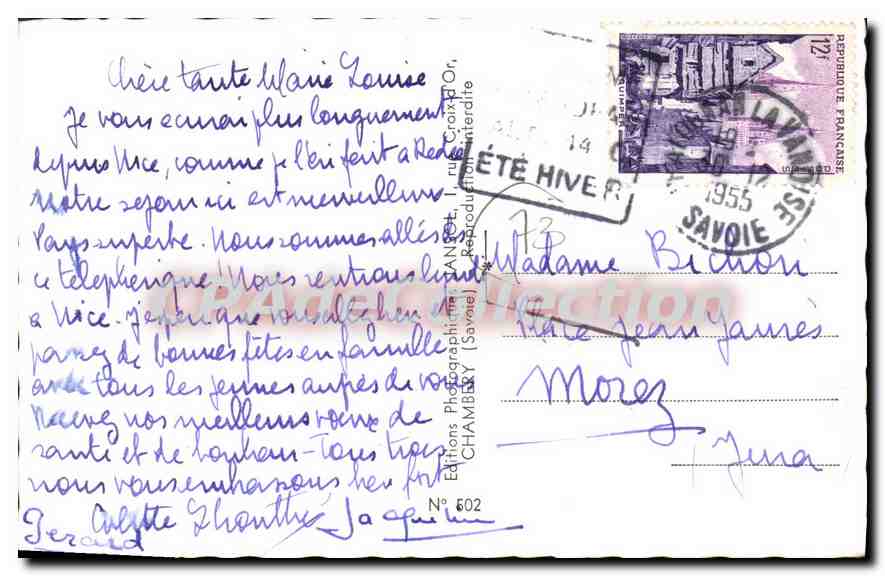 Chère tante Marie Louise
Je vous écrirai plus longuement
depuis Nice, comme je l'ai fait à
Notre séjour ici est merveilleux
Pays superbe. Nous sommes allés
ce téléphérique! Nous rentrons lundi
à Nice. J'espère que vous allez bien
passez de bonnes fêtes en famille
avec tous les jeunes auprès de vous
Recevez nos meilleurs voeux de
santé et de bonheur - Tous trois
nous vous embrassons bien fort
Colette Jacqueline
Gérard
Editions Photographiques CANSOL, 1, rue Croix-d'Or,
CHAMBÉRY (Savoie) Reproduction interdite
N° 502
ÉTÉ HIVER
14
PRALOGNAN LA VANOISE
12
1955
SAVOIE
12f
REPUBLIQUE FRANÇAISE
QUIMPER
POSTES
73
Madame Bichon
Place Jean Jaurès
Morez
Jura
CPAdeCollection